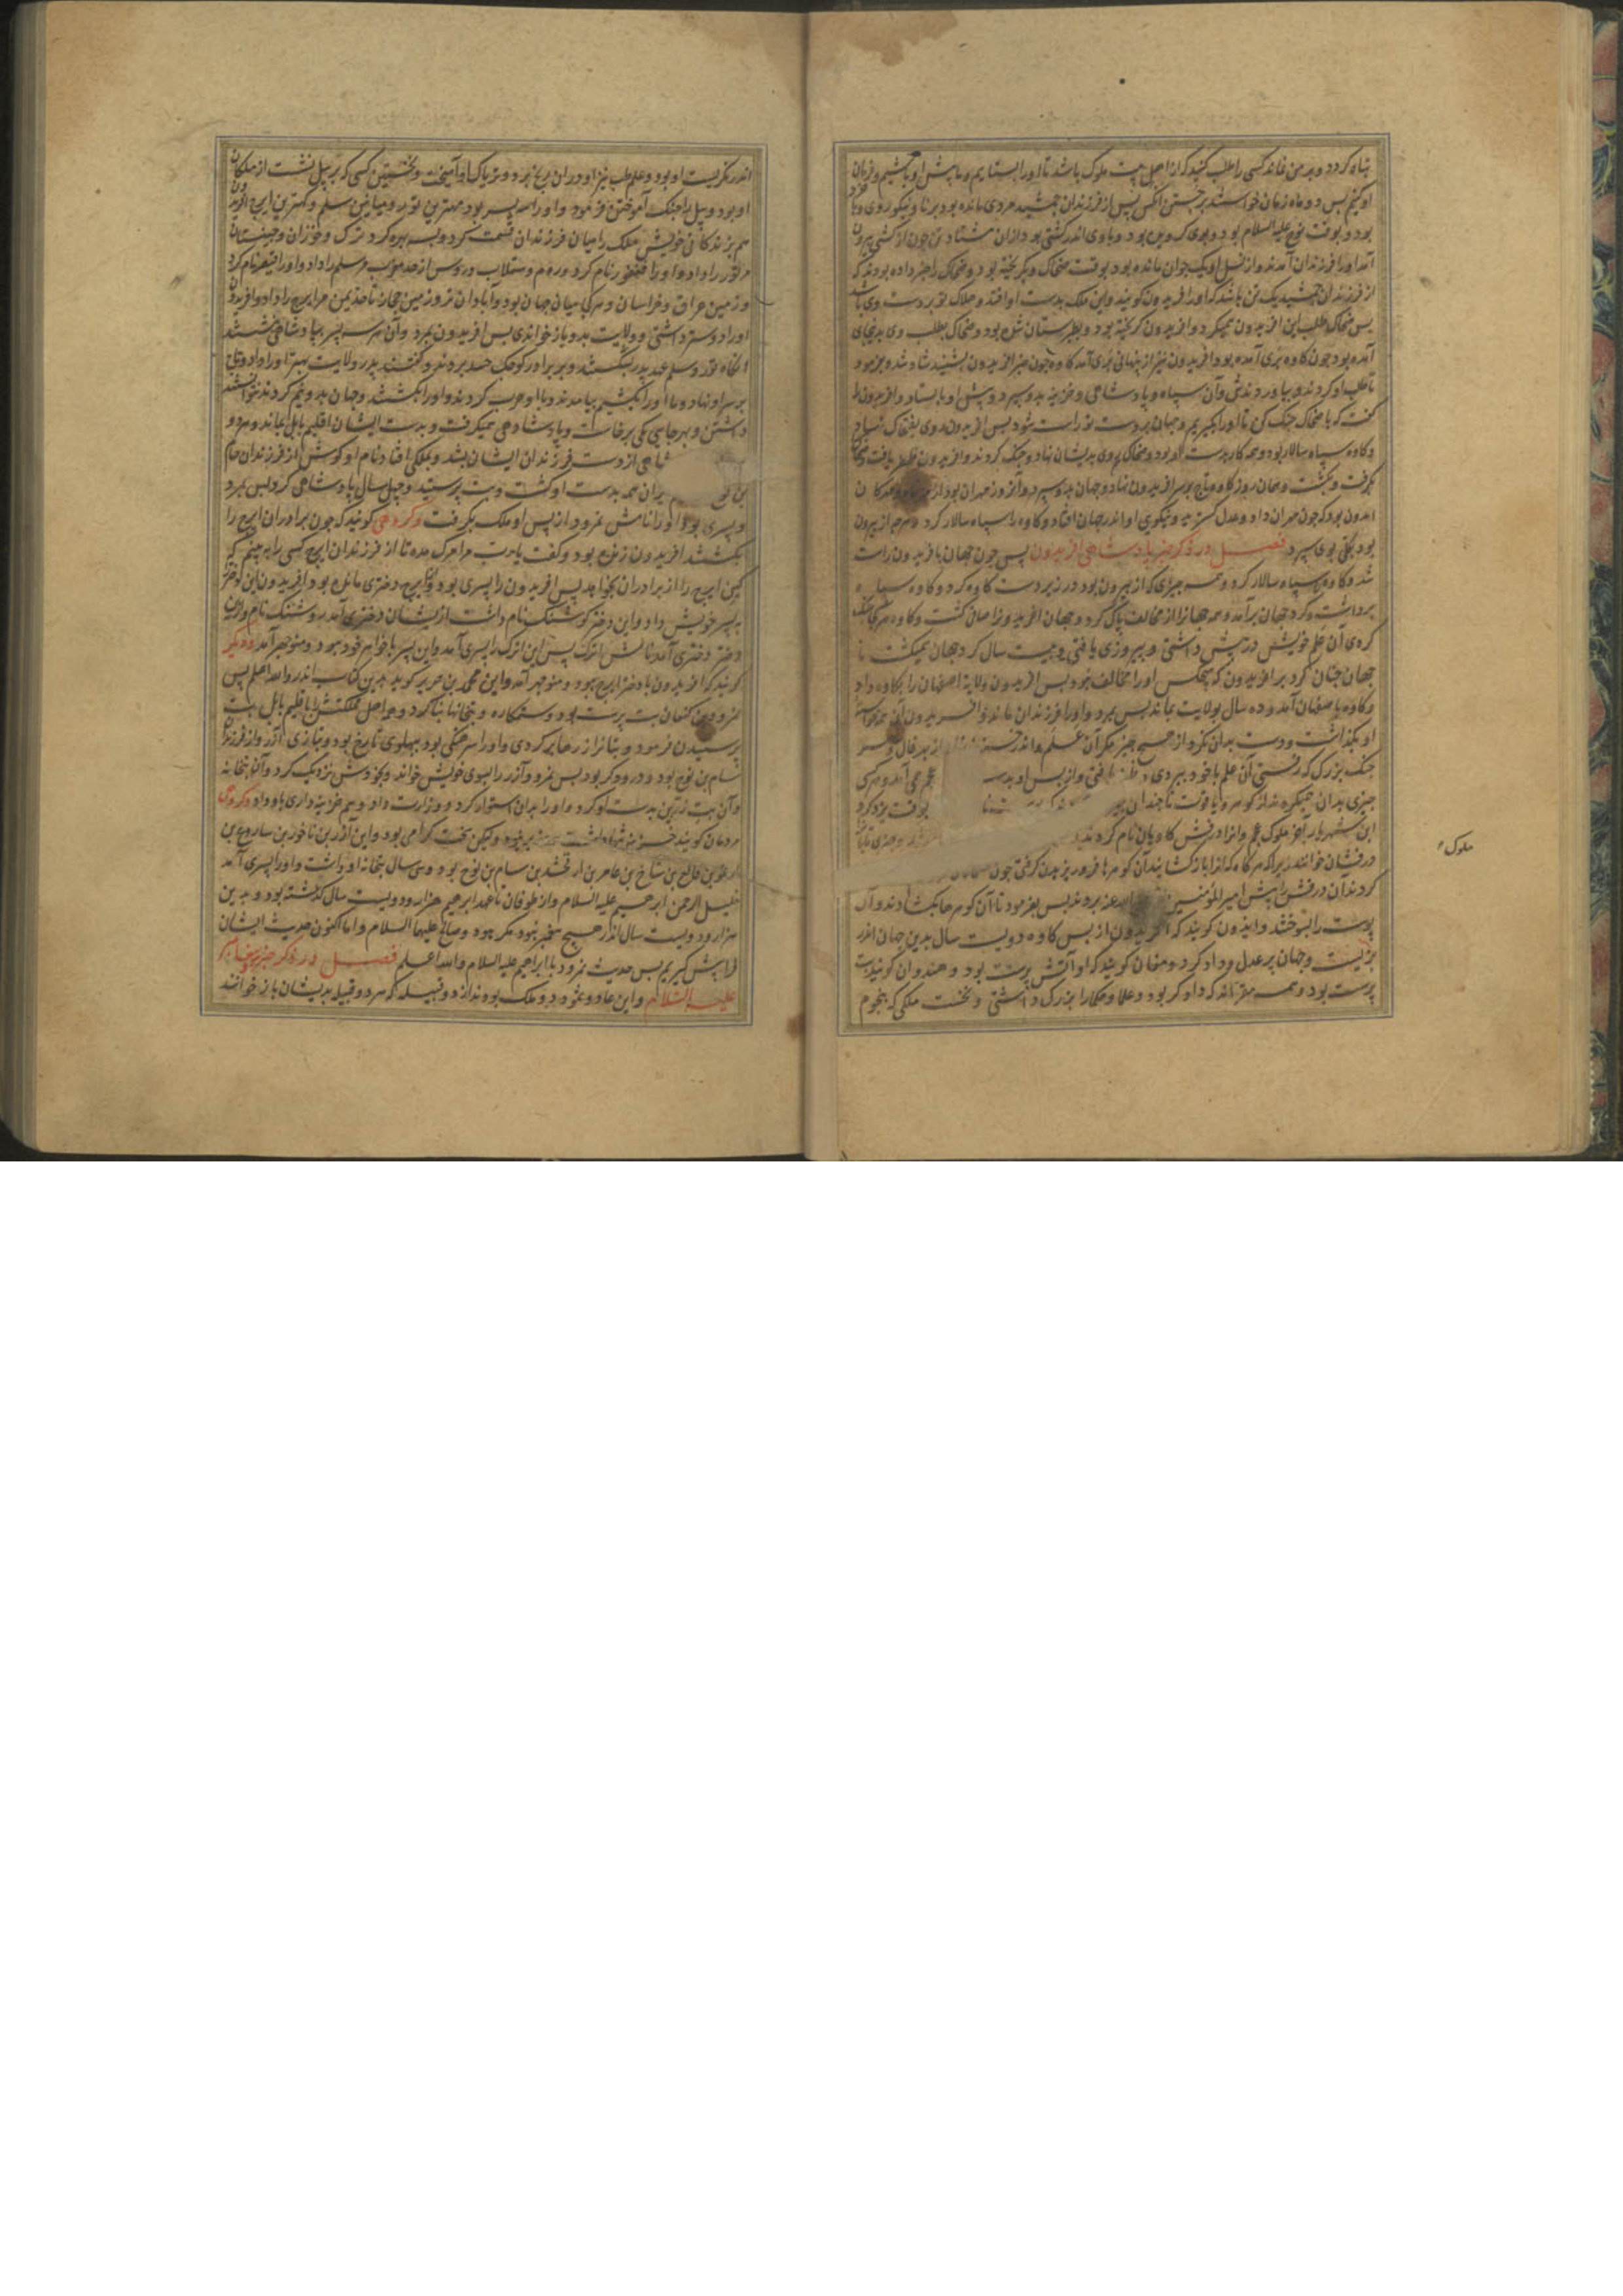 تباه کردد و بد من نماند کسی را طلب کنید که از اهل بیت ملوک باشد تا او را بستایم و ما پیش او باشیم و فرمان
او کنیم پس دو ماه زمان خواستند بجستن انکس پس از فرزندان جمشید مردی مانده بود برنا و نیکوروی و با خرد
بود و بوقت نوح علیه السلام بود و بوی کرویده بود و با وی اندر کشتی بود از ان هشتاد تن چون از کشتی بیرون
آمد او را فرزندان آمدند و از نسل او یک جوان مانده بود بوقت ضحاک و بکریخته بود و ضحاک را خبر داده بودند که
از فرزندان جمشید یک تن باشد که او را افریدون کویند و این ملک بدست او افتد و هلاک تو بر دست وی باشد
پس ضحاک طلب این افریدون میکرد و افریدون کریخته بود و بطبرستان شده بود و ضحاک بطلب وی
آمده بود چون کاوه بری آمده بود افریدون نیز از پنهانی بری آمد کاوه چون خبر افریدون بشنید شاد شد و بفرمود
تا طلب او کردند و بیاوردندش و آن سپاه و پادشاهی و خزینه بدو سپرد و پیش او بایستاد و افریدون را
کفت که با ضحاک جنک کن تا او را بکیریم و جهان بر دست تو راست شود پس افریدون روی بضحاک نهاد
و کاوه سپاه سالار بود و همه کار بدست او بود و ضحاک روی بدیشان نهاد و جنک کردند و افریدون ظفر یافت و ضحاک
بکرفت و بکشت و همان روز کاوه تاج بر سر افریدون نهاد و جهان بدو سپرد و آنروز مهر ان بود از
چون مهران داد و عدل کسترید و نیکوی او اندر جهان افتاد و کاوه را سپاه سالار کرد و هرچه از بیرون
بود بکلی بوی سپرد فصل در ذکر خبر پادشاهی افریدون پس چون جهان بافریدون راست
شد کاوه را سپاه سالار کرد و همه چیزی که از بیرون بود در زیر دست کاوه کرد و کاوه سپاه
برداشت و کرد جهان برآمد و همه جهانرا از مخالف پاک کرد و جهان افریدونرا صافی کشت و کاوه هر کجا جنک
کردی آن علم خویش در پیش داشتی و پیروزی یافتی و بیست سال کرد جهان میکشت تا
جهان چنان کرد بر افریدون که هیچکس او را مخالف نبود پس افریدون ولایة اصفهان را بکاوه داد
و کاوه باصفهان آمد و ده سال بولایت بماند پس بمرد و او را فرزندان ماند و افریدون آن همه خواسته
او بکذاشت و دست بدان نکرد از هیچ چیز مکر آن علم و اندر خزینه از بهر فال و هر
جنک بزرک که رفتی آن علم با خود ببردی و ظفر یافتی و از پس او بدست عجم همی آمد و هرکسی
چیزی بدان همیکردند از کوهر و یاقوت تا چندان بوقت یزدکرد
ابن شهریار آخر ملوک عجم و انرا درفش کاویان نام کردند
درفشان خواندند زیرا که هرکاه که انرا بازکشایندی آن کوهرها فرو ریزیدن کرفتی چون
کردند آن درفش را پیش امیر المؤمنین عمر بردند پس بفرمود تا آن کوهرها بکشادند و آن
پوست را بسوختند و ایذون کویند که افریدون از پس کاوه دویست سال بدین جهان اندر
بزیست و جهان بر عدل و داد کرد و مغان کویند که او آتش پرست بود و هندوان کویند بت
پرست بود و همه مقراند که دادکر بود و علما و حکما را بزرک داشتی و نخست ملکی که بنجوم
ملوک
اندر نکریست او بود و علم طب نیز او در ان رنج برد و تریاک او آمیخت و نخستین کسی که بر پیل نشست از ملکان
او بود و پیل را جنک آموختن فرمود و او را سه پسر بود مهترین تور و میانین سلم و کهترین ایرج افریدون
هم بزندکانی خویش ملک را میان فرزندان قسمت کرد و بسه بهره کرد ترک و خزران و چینستان
مر تور را داد و او را فغفور نام کرد و روم و سقلاب و روس از حد مغرب مر سلم را داد و او را قیصر نام کرد
و زمین عراق و خراسان و هرکجا میان جهان بود و آبادان تر و زمین حجاز تا حد یمن مر ایرج را داد و افریدون
او را دوستر داشتی و ولایت بدو بازخواندی پس افریدون بمرد و آن هرسه پسر بپادشاهی نشستند
انکاه تور و سلم عهد پدر بشکستند و بر برادر کوچک حسد بردند و کفتند پدر ولایت بهتر او را داد و تاج
بر سر او نهاد و ما او را بکشیم بیامدند و با او حرب کردند و او را بکشتند و جهان بدو نیم کردند نتوانستند
داشتن و بهر جایی ملکی برخاست و پادشاهی همیکرفت و بدست ایشان اقلیم بابل بماند و مردو
شاهی از دست فرزندان ایشان بشد و بملکی افتاد نام او کوش از فرزندان حام
بن نوح ایران همه بدست او کشت و بت پرستید و چهل سال پادشاهی کرد پس بمرد
و پسری بود او را نامش نمرود از پس او ملک بکرفت و کروهی کویند که چون برادران ایرج را
بکشتند افریدون زنده بود و کفت یا رب مرا مرک مده تا از فرزندان ایرج کسی را ببینم که
کین ایرج را از برادران بخواهد پس افریدون را پسری بود و از ایرج دختری مانده بود افریدون این دختر
به پسر خویش داد و این دختر کوشنک نام داشت از ایشان دختری آمد روشنک نام و از این
دختر دختری آمد نامش اترک پس این اترک را پسری آمد و این پسر با خواهر خود ببود و منوچهر آمد و دیکر
کویند که افریدون با دختر ایرج ببود و منوچهر آمد و این محمد بن جریر کوید بدین کتاب اندر والله اعلم پس
نمرود بن کنعان بت پرست بود و ستمکاره و بتخانها بنا کرد و بود اصل مملکتش باقلیم بابل بت
پرستیدن فرمود و بتانرا زر ها بر کردی و او را سرهنکی بود بپهلوی تارخ بود و بتازی آزر و از فرزندان
سام بن نوح بود و درودکر بود پس نمرود آزر را بسوی خویش خواند و بخودش نزدیک کرد و آن بتخانه
و آن بت زرین بدست او کرد و او را بر ان استوار کرد و وزارت داد و هم خزینه داری باو داد و کروهی
مردمان کویند خزینه نداشت وزیر نبود ولیکن سخت کرامی بود و این آزر بن ناخور بن ساروغ بن
ارغو بن فالع بن شالخ بن عامر بن ارفخشد بن سام بن نوح بود و سی سال بتخانه او داشت و او را پسری آمد
خلیل الرحمن ابرهیم علیه السلام و از طوفان تا عهد ابرهیم هزار و دویست سال کذشته بود و بدین
هزار و دویست سال اندر هیچ پیغمبر نبود مکر هود و صالح علیهما السلام و اما اکنون حدیث ایشان
فراپیش کیریم پس حدیث نمرود با ابراهیم علیه السلام والله اعلم فصل در ذکر خبر هود پیغامبر
علیه السلام و این عاد و ثمود دو ملک بودند از دو قبیله که هر دو قبیله بدیشان بازخوانند